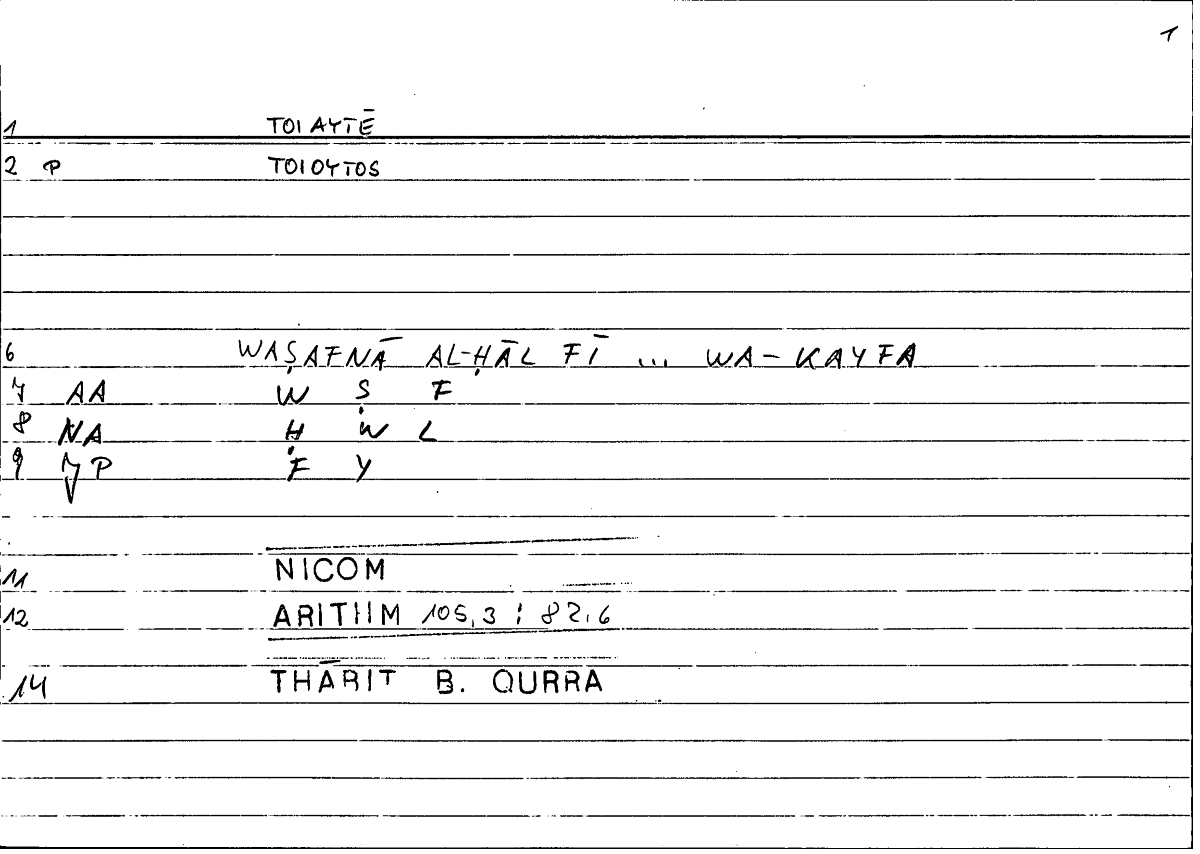 1
1 TOIAYTĒ
2 P TOIOYTOS
6 WAṢAFNĀ AL-ḤĀL FĪ ... WA-KAYFA
7 AA W Ṣ F
8 NA Ḥ W L
9 P F Y
11 NICOM
12 ARITHM 105,3 : 82,6
14 THĀBIT B. QURRA